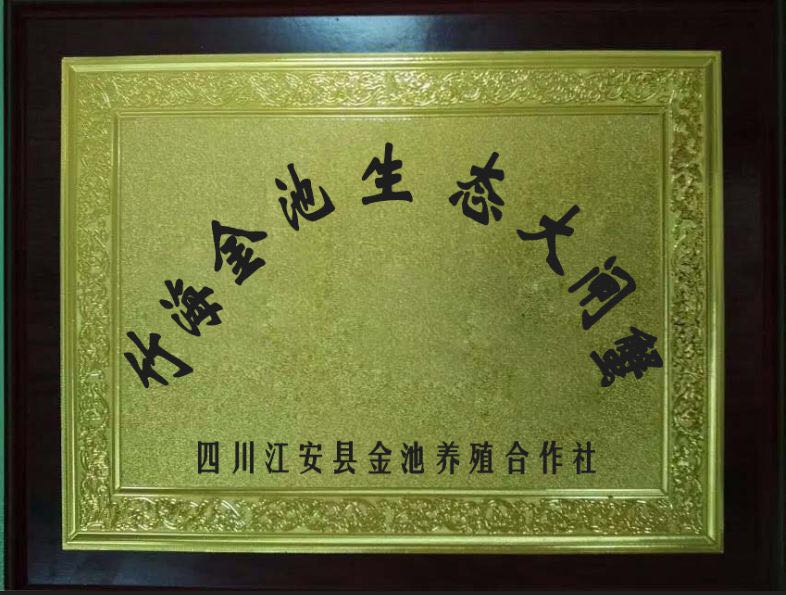 竹海金池生态大闸蟹
四川江安县金池养殖合作社